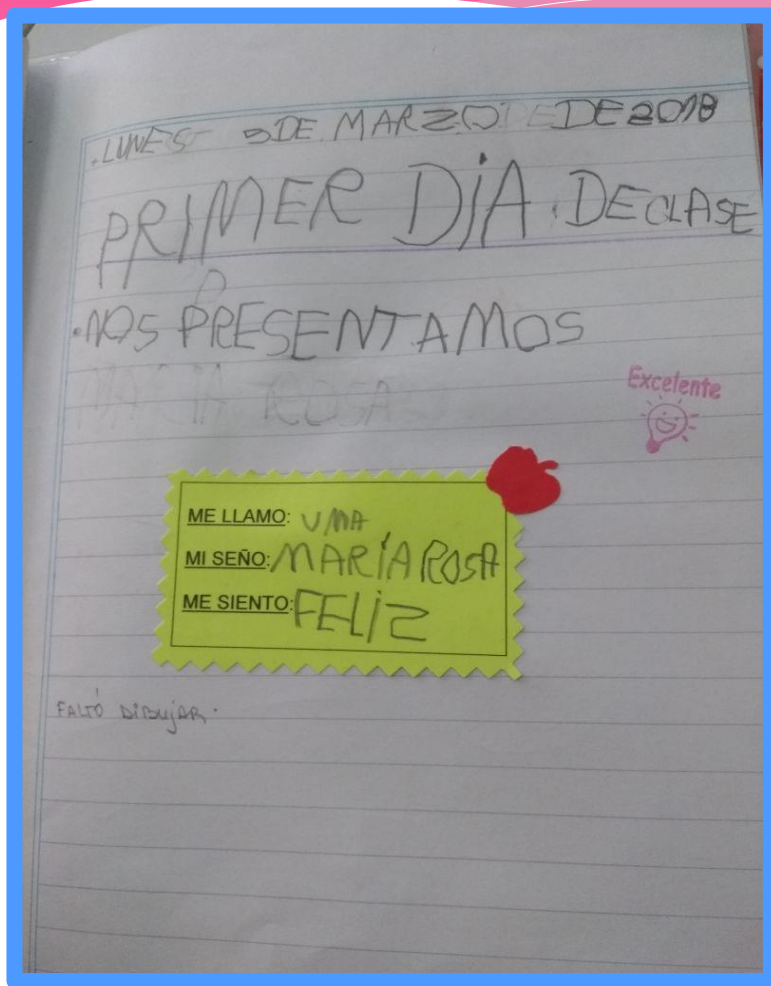 .LUNES 5 DE MARZO DE 2018
PRIMER DÍA. DE CLASE
.NOS PRESENTAMOS
MARIA ROSA
Excelente
ME LLAMO: UMA
MI SEÑO: MARÍA ROSA
ME SIENTO: FELIZ
FALTÓ DIBUJAR.